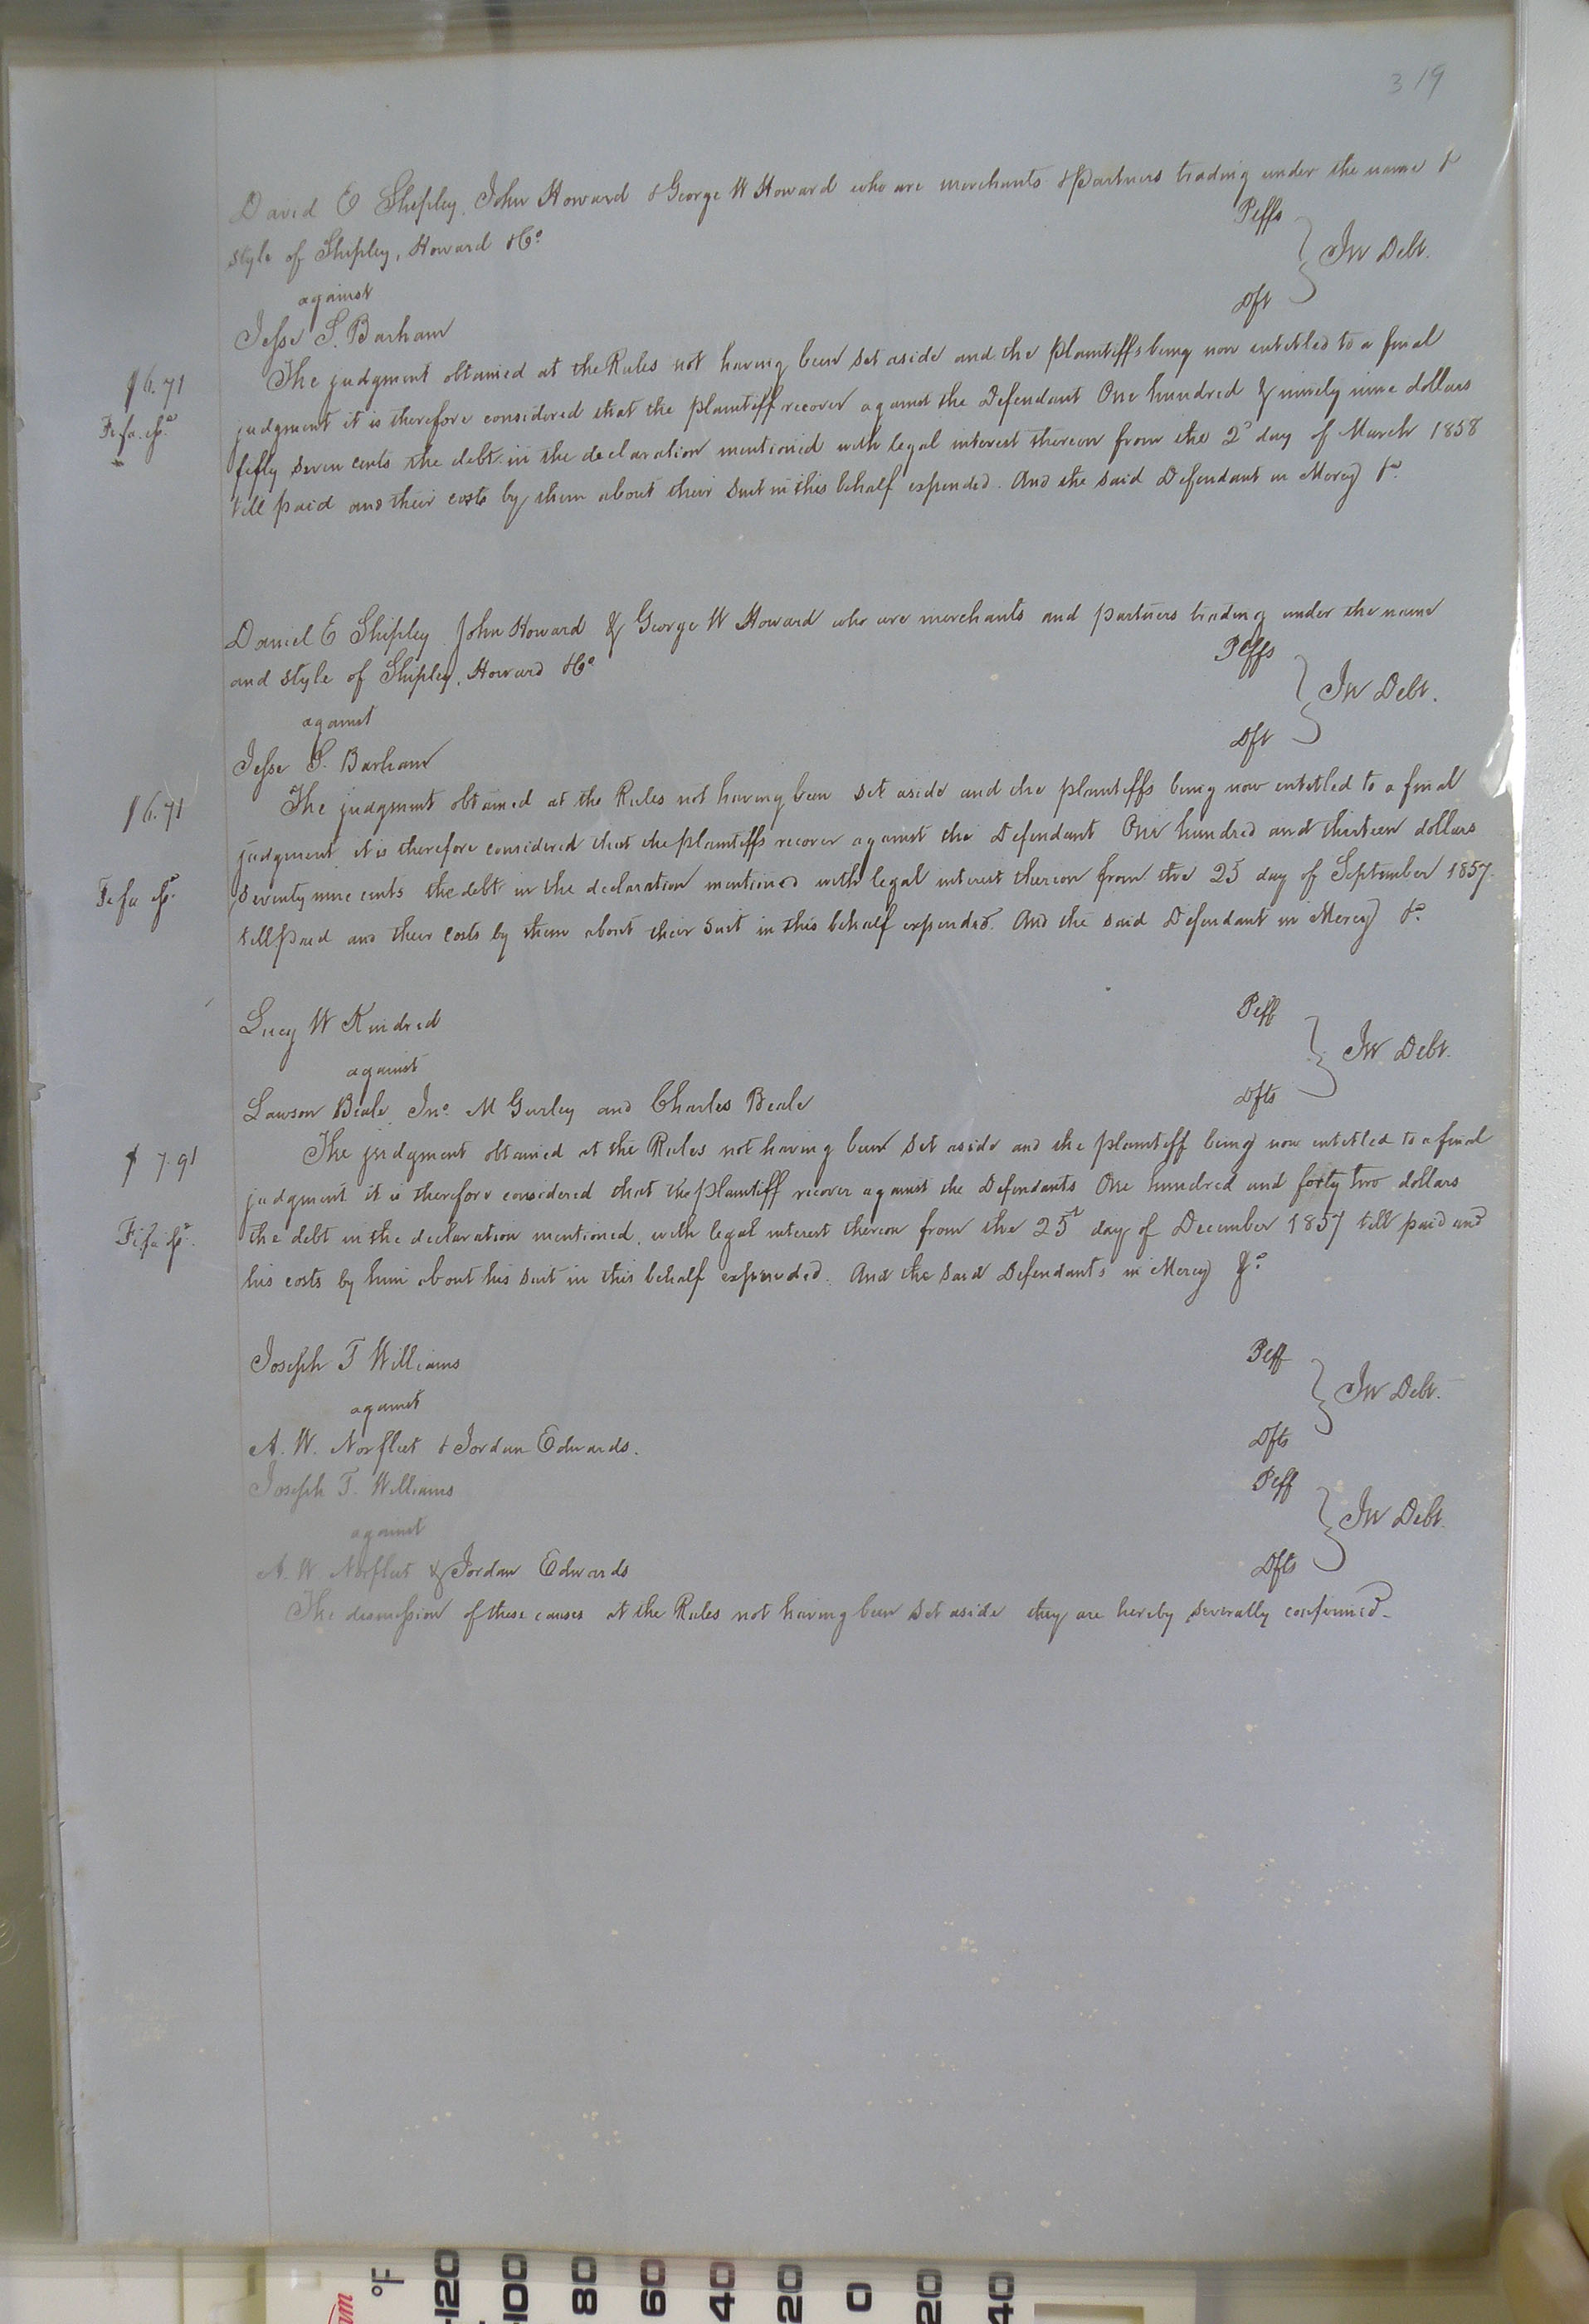 319
David E Shipley, John Howard & George W Howard who are merchants & partners trading under the name &
style of Shipley, Howard & Co Plffs
against In Debt.
Jesse S. Barham Dft
$6.71 The judgment obtained at the Rules not having been set aside and the Plaintiffs being now entitled to a final
Fi. fa. judgment it is therefore considered that the plaintiff recover against the Defendant One hundred & ninety nine dollars
fifty seven cents the debt in the declaration mentioned with legal interest thereon from the 2d day of March 1858
till paid and their costs by them about their suit in this behalf expended. And the said Defendant in Mercy &c.
Daniel E Shipley John Howard & George W Howard who are merchants and partners trading under the name
and style of Shipley, Howard & Co Plffs
against In Debt.
Jesse S. Barham Dft
$6.71 The judgment obtained at the Rules not having been set aside and the plaintiffs being now entitled to a final
judgment it is therefore considered that the plaintiffs recover against the Defendant One hundred and thirteen dollars
Fi fa seventy nine cents the debt in the declaration mentioned with legal interest thereon from the 25 day of September 1857.
till paid and their costs by them about their suit in this behalf expended. And the said Defendant in Mercy &c.
Lucy W Kindred Plff
against In Debt.
Lawson Beale, Jno. M Gurley and Charles Beale Dfts
$7.91 The judgment obtained at the Rules not having been set aside and the plaintiff being now entitled to a final
judgment it is therefore considered that the plaintiff recover against the Defendants One hundred and forty two dollars
Fi. fa the debt in the declaration mentioned, with legal interest thereon from the 25 day of December 1857 till paid and
his costs by him about his suit in this behalf expended. And the said Defendants in Mercy &c.
Joseph T Williams Plff
against In Debt.
A. W. Norfleet & Jordan Edwards. Dfts
Joseph T. Williams Plff
against In Debt.
A. W Norfleet & Jordan Edwards Dfts
The dismission of these causes at the Rules not having been set aside they are hereby severally confirmed.
°F
120
100
80
60
40
20
0
20
40